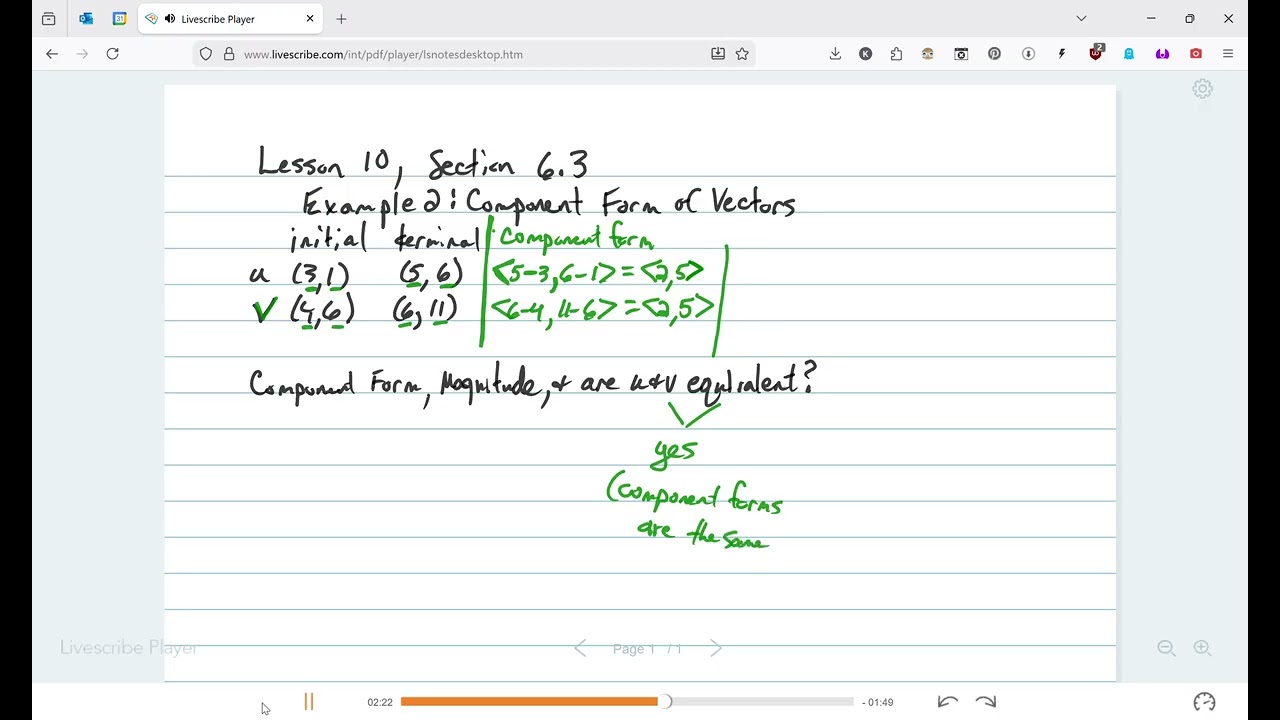 Livescribe Player
www.livescribe.com/int/pdf/player/lsnotesdesktop.htm
Lesson 10, Section 6.3
Example 2: Component Form of Vectors
initial terminal Component form
u (3,1) (5, 6) <5-3, 6-1> = <2,5>
v (4,6) (6, 11) <6-4, 11-6> = <2,5>
Component Form, Magnitude, & are u & v equivalent?
yes
(component forms
are the same
Livescribe Player
Page 1 / 1
02:22
- 01:49